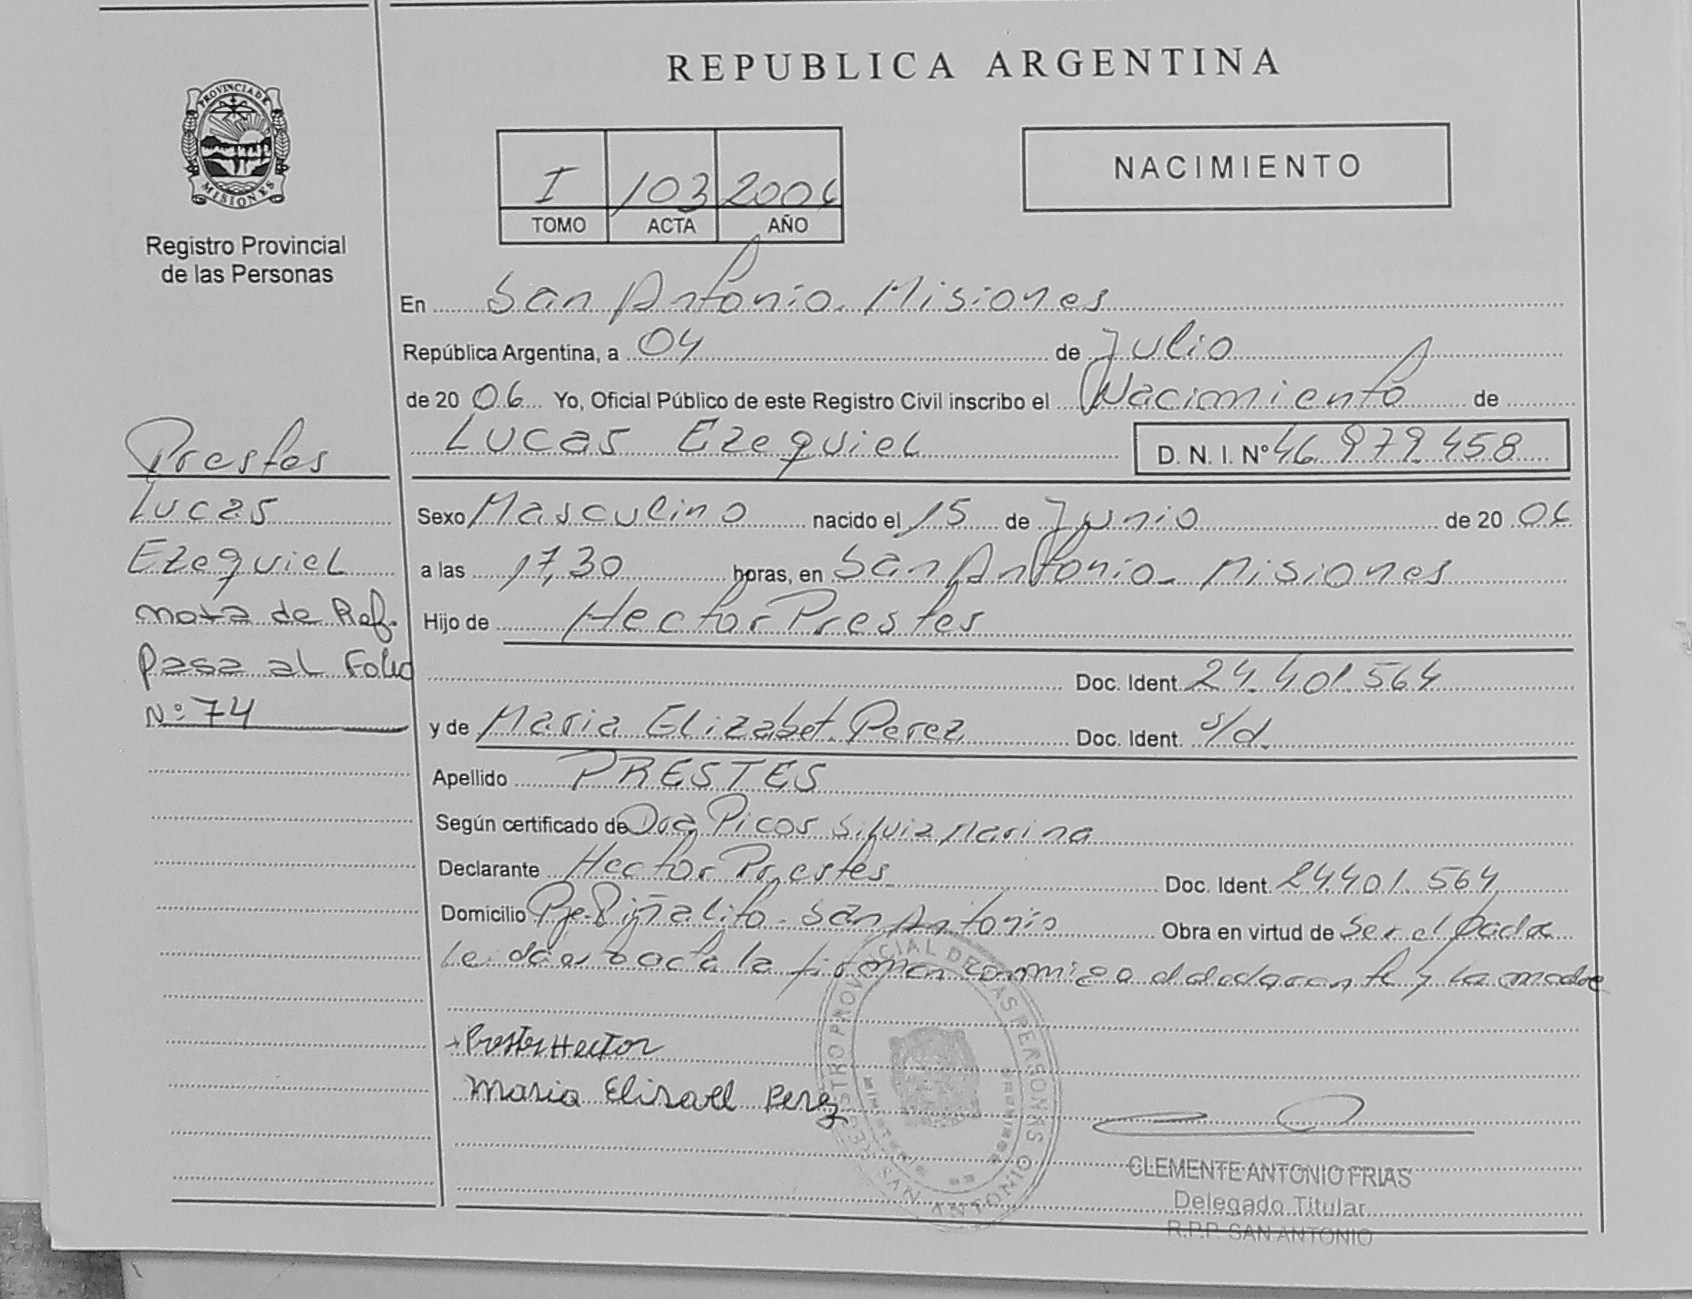 REPUBLICA ARGENTINA
PROVINCIA DE
MISIONES
Registro Provincial
de las Personas
I 103 2006
TOMO ACTA AÑO
NACIMIENTO
En San Antonio - Misiones
República Argentina, a 04 de Julio
de 20 06 Yo, Oficial Público de este Registro Civil inscribo el Nacimiento de
Lucas Ezequiel D. N. I. Nº 46.979.458
Prestes
Lucas
Ezequiel
nota de Ref.
Pasa al Folio
Nº 74
Sexo Masculino nacido el 15 de Junio de 20 06
a las 17,30 horas, en San Antonio - Misiones
Hijo de Hector Prestes
Doc. Ident. 24.401.564
y de Maria Elizabet Perez Doc. Ident. s/d.
Apellido PRESTES
Según certificado de Dra Picos Silvia Marina
Declarante Hector Prestes Doc. Ident. 24401.564
Domicilio Pje. Piñalito - San Antonio Obra en virtud de Ser el Padre
Leida el acta la firman conmigo el declarante y la madre
Prestes Hector
Maria Elisabet Perez
REGISTRO PROVINCIAL DE LAS PERSONAS
SAN ANTONIO
CLEMENTE ANTONIO FRIAS
Delegado Titular
R.P.P. SAN ANTONIO